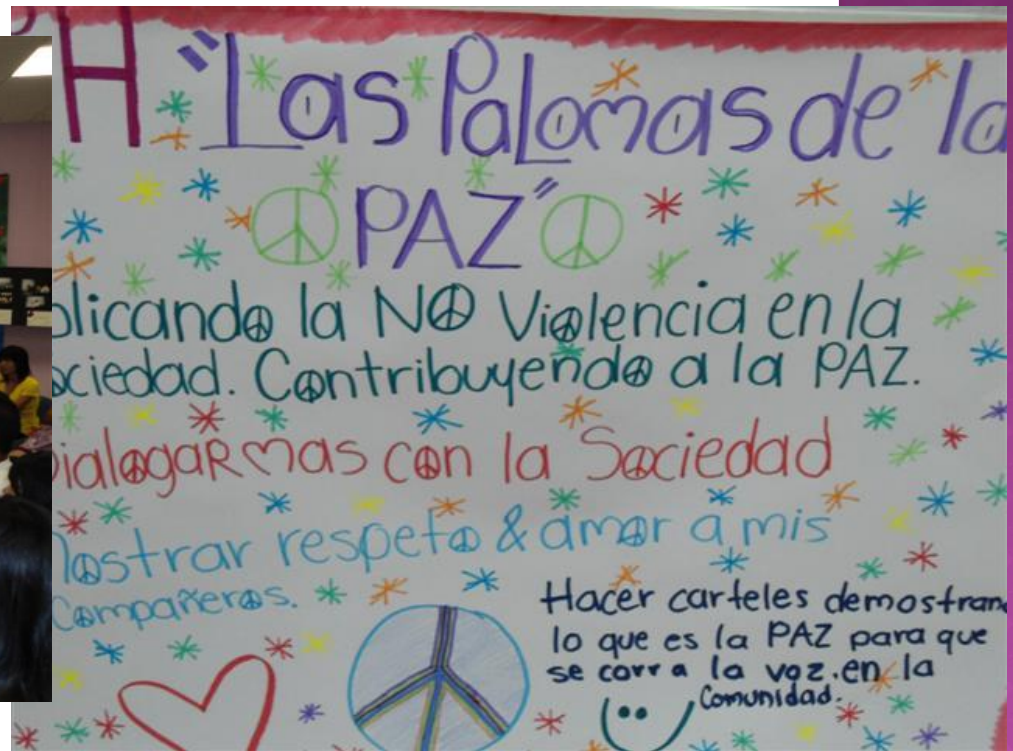 H "Las Palomas de la
PAZ"
plicando la NO Violencia en la
ociedad. Contribuyendo a la PAZ.
ialogar mas con la Sociedad
ostrar respeto & amor a mis
Compañeros.
Hacer carteles demostran
lo que es la PAZ para que
se corra la voz en la
Comunidad.